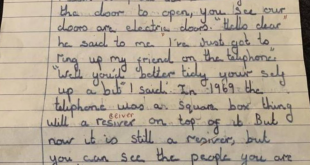 the door to open, you see our
doors are electric doors. "Hello dear"
he said to me I've just got to
ring up my friend on the telephone"
"Well you'd better tidy your self
up a bit" I said. In 1969 the
telephone was a square box thing
will a resiver on top of it But
ceiver
now it is still a resiver, but
you can see the people you are